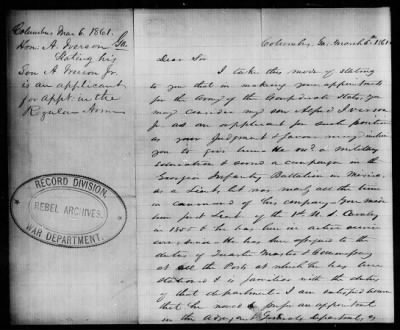 Columbus Mar 6. 1861.
Hon. A Iverson Ga
Stating his
Son A. Iverson Jr.
is an applicant
for appt. in the
Regular Army
RECORD DIVISION,
REBEL ARCHIVES,
WAR DEPARTMENT.
Columbus, Ga, March 6th 1861
Dear Sir
I take this mode of stating
to you that in making your appointments
for the army of the Confederate States, you
may consider my son Alfred Iverson
Jr as an applicant for such position
as your judgment & favor may induce
you to give him. He recd a military
education & served a campaign in the
Georgia Infantry Battalion in Mexico,
as a Lieut, but was nearly all the time
in command of his company. He was made
1st Lieut of the 1st U. S. Cavalry
in 1855 & he has been in active service
ever since. He has been assigned to the
duties of Quarter Master & Commissary
at all the Posts at which he has been
stationed & is familiar with the duties
of that department. I am satisfied
that he would prefer an appointment
in the Adjt &amp; Inspector's department, or